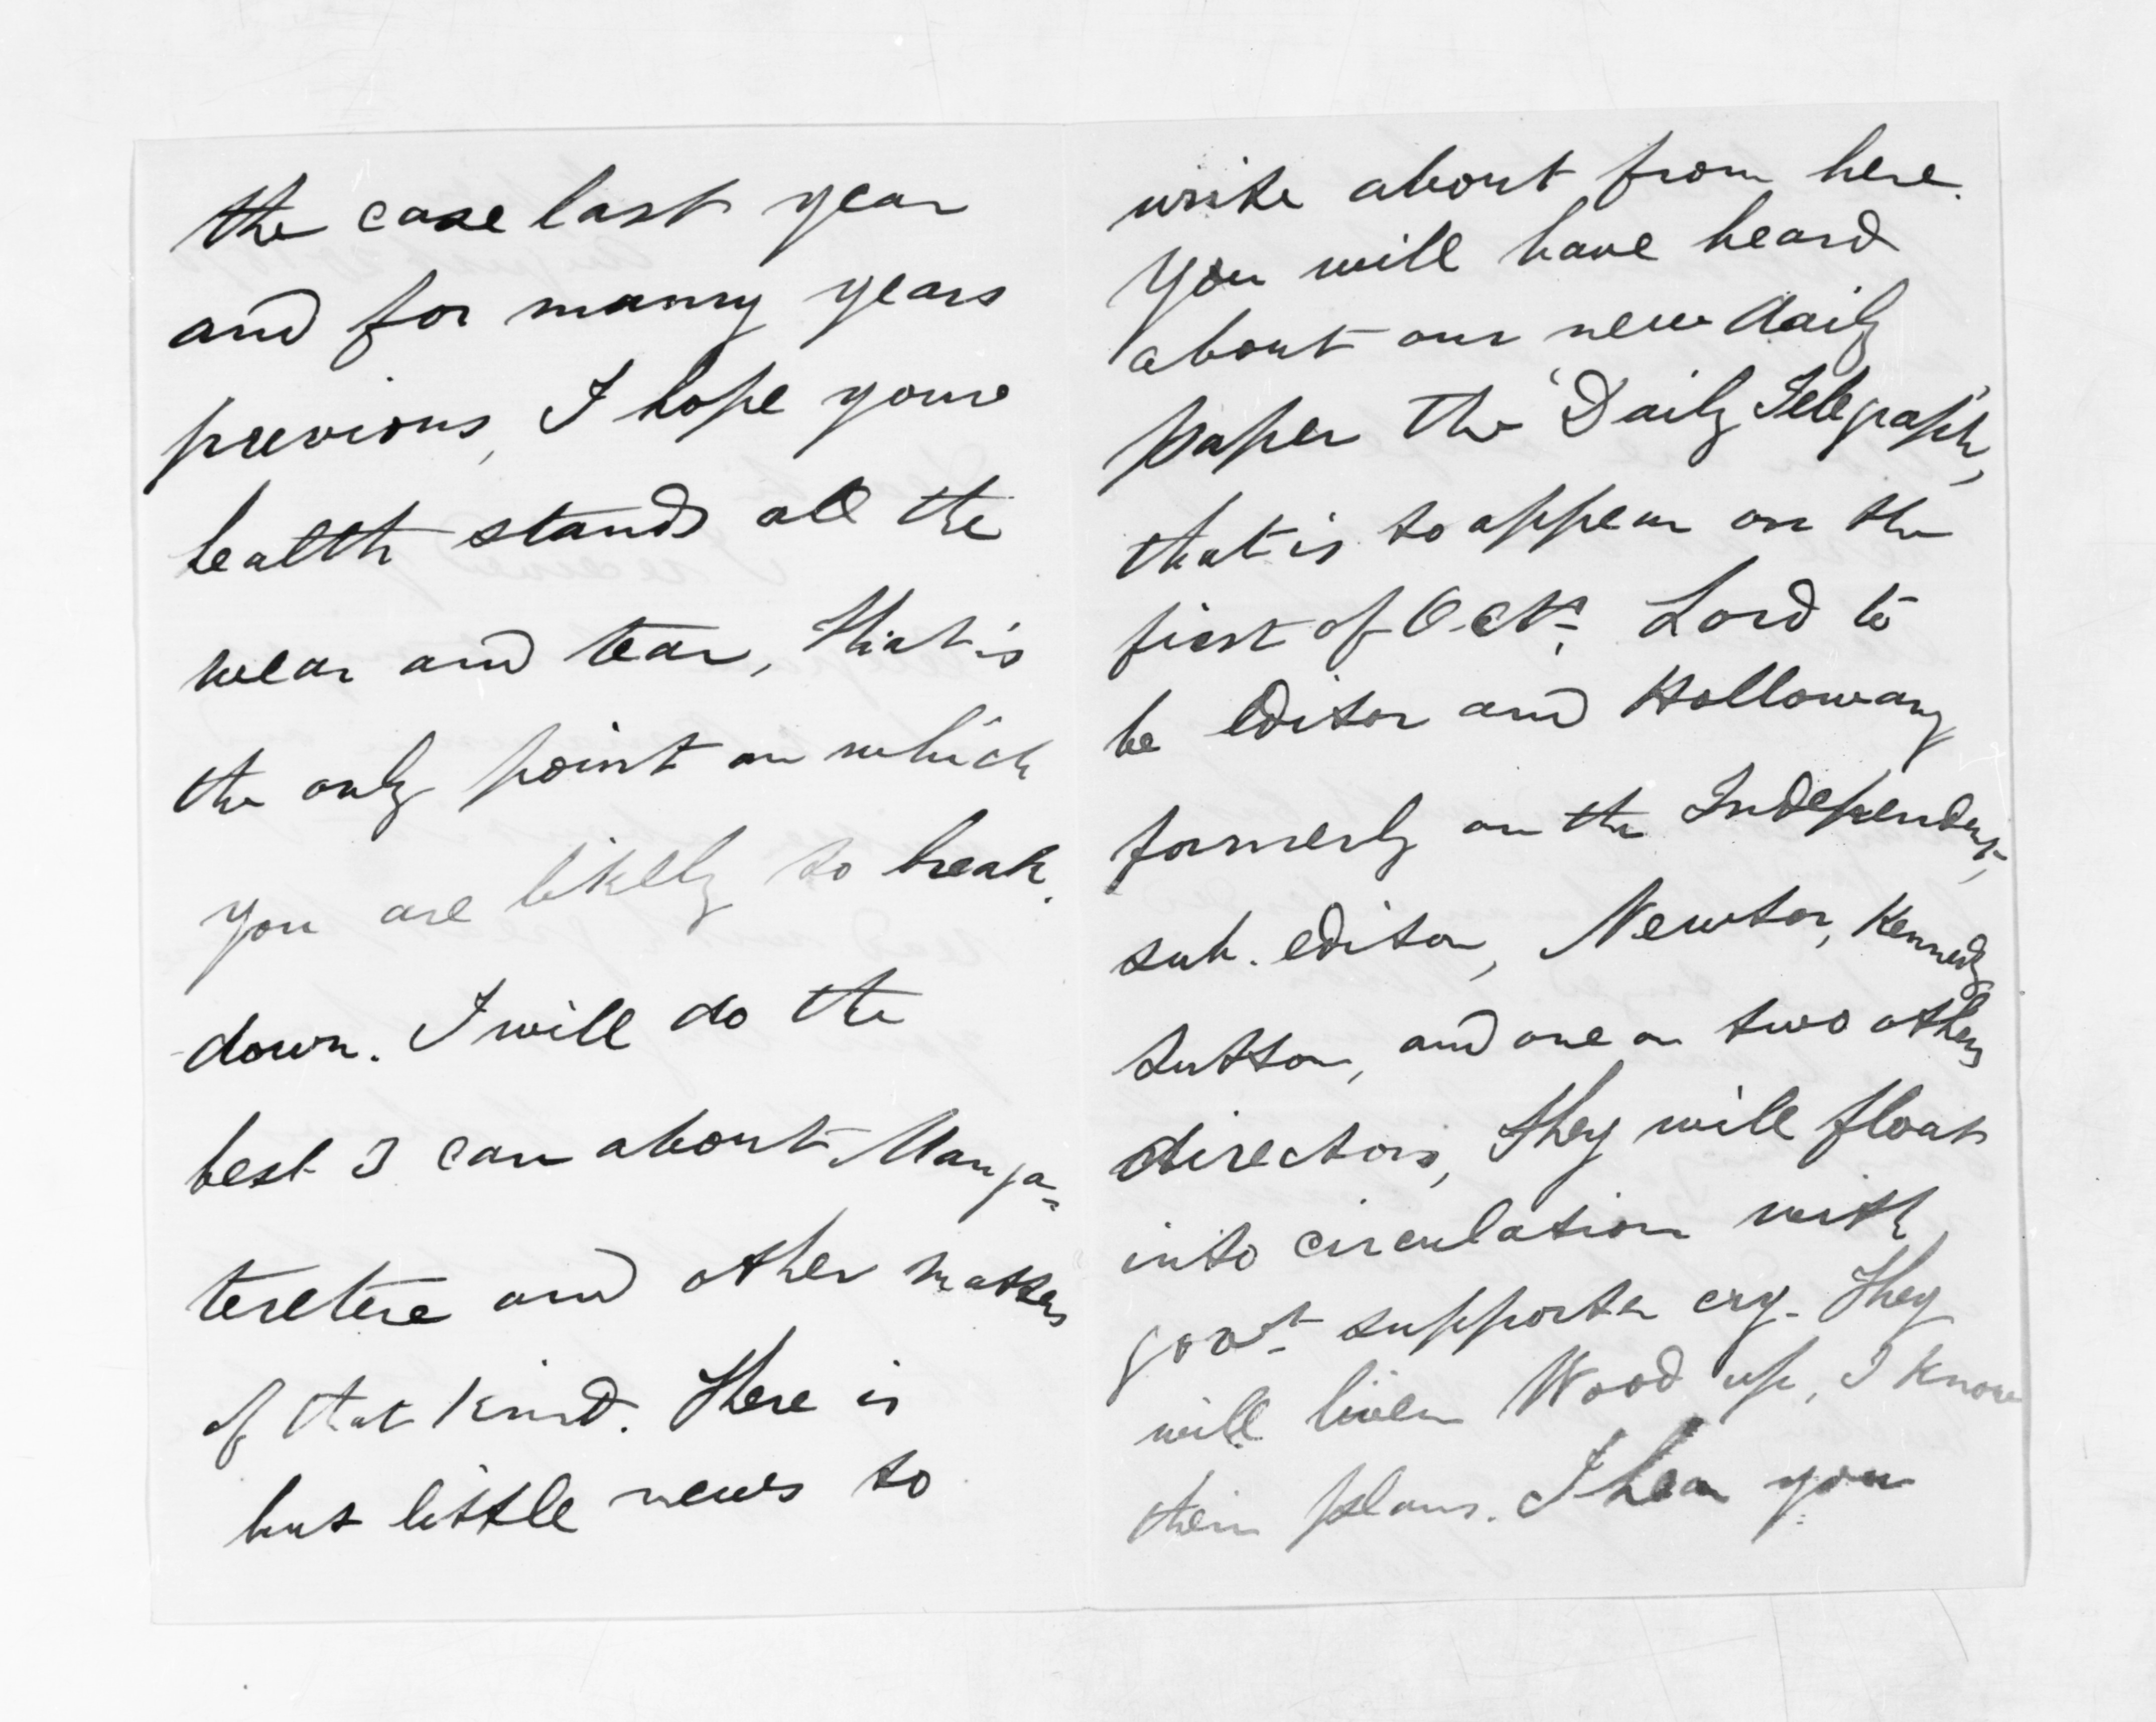 the case last year
and for many years
previous, I hope your
health stands all the
wear and tear, that is
the only point on which
you are likely to break
down. I will do the
best I can about Manga=
teretere and other matters
of that kind. There is
but little news to
write about from here.
You will have heard
about our new daily
paper the "Daily Telegraph",
that is to appear on the
first of Oct. Lord to
be editor and Holloway
formerly on the Independent,
sub. editor, Newton, Kennedy
Sutton, and one or two others
directors, they will float
into circulation with
govt supporter cry. They
will liven Wood up, I know
their plans. I hear you